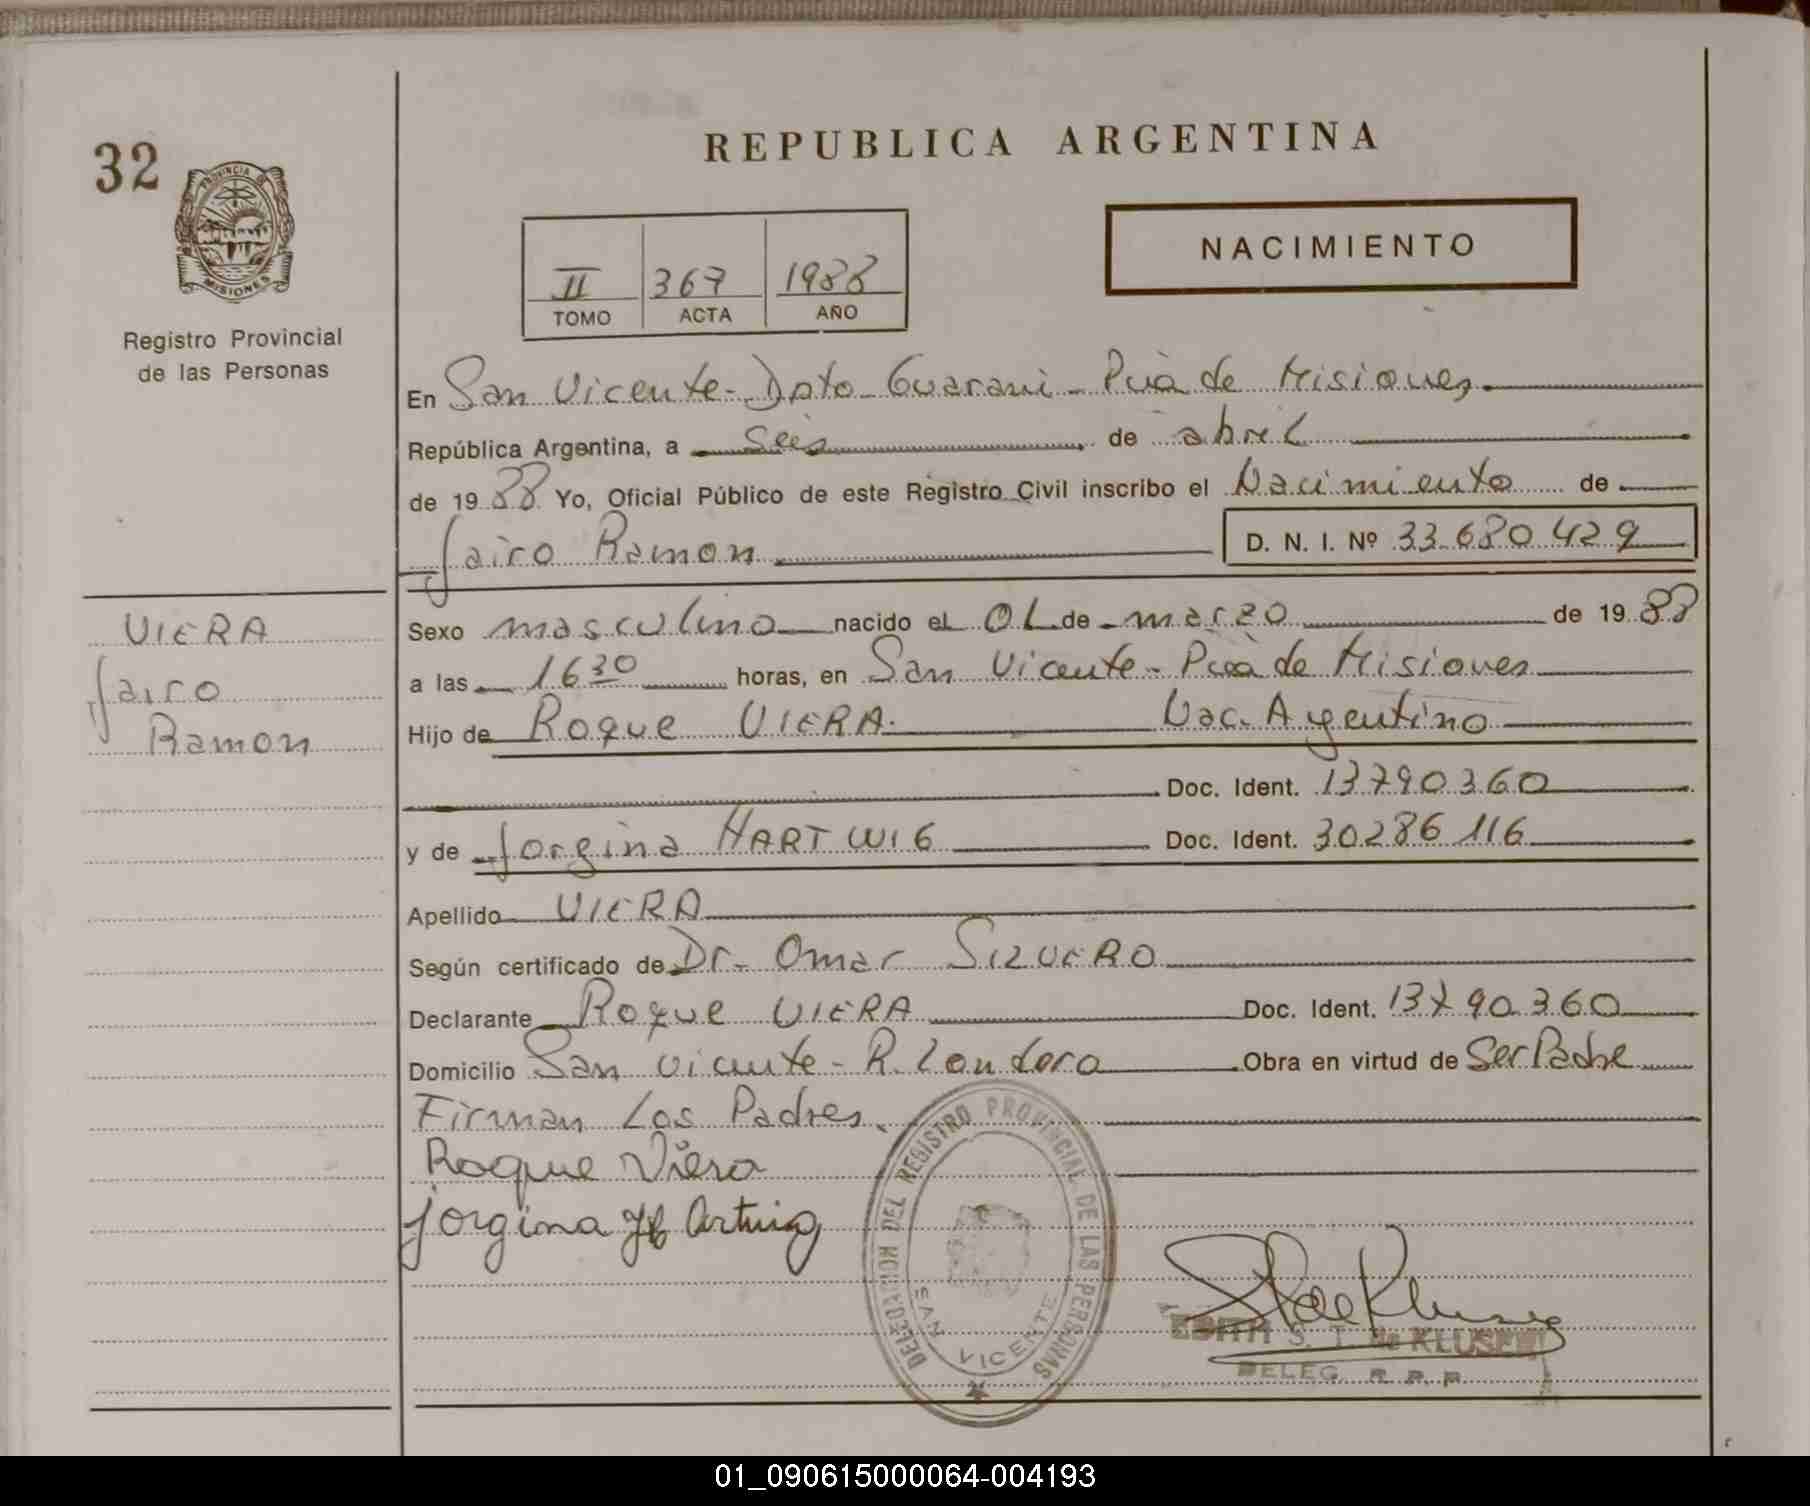 32
PROVINCIA DE
MISIONES
Registro Provincial
de las Personas
VIERA
Jairo
Ramon
REPUBLICA ARGENTINA
II 367 1988
TOMO ACTA AÑO
NACIMIENTO
En San Vicente - Dpto Guarani - Pcia de Misiones
República Argentina, a seis de abril
de 1988 Yo, Oficial Público de este Registro Civil inscribo el Nacimiento de
Jairo Ramon D. N. I. Nº 33.680.429
Sexo masculino nacido el 01 de marzo de 1988
a las 16 30 horas, en San Vicente - Pcia de Misiones
Hijo de Roque VIERA. Nac. Argentino
Doc. Ident. 13790360
y de Jorgina HARTWIG Doc. Ident. 30286116
Apellido VIERA
Según certificado de Dr. Omar
Declarante Roque VIERA Doc. Ident. 13790360
Domicilio San Vicente - R. Londero Obra en virtud de Ser Padre
Firman Los Padres.
Roque Viera
Jorgina
DELEGACION DEL REGISTRO PROVINCIAL DE LAS PERSONAS
SAN VICENTE
EDITH S. T. de KLUSENER
DELEG. R. P. P.
01_090615000064-004193